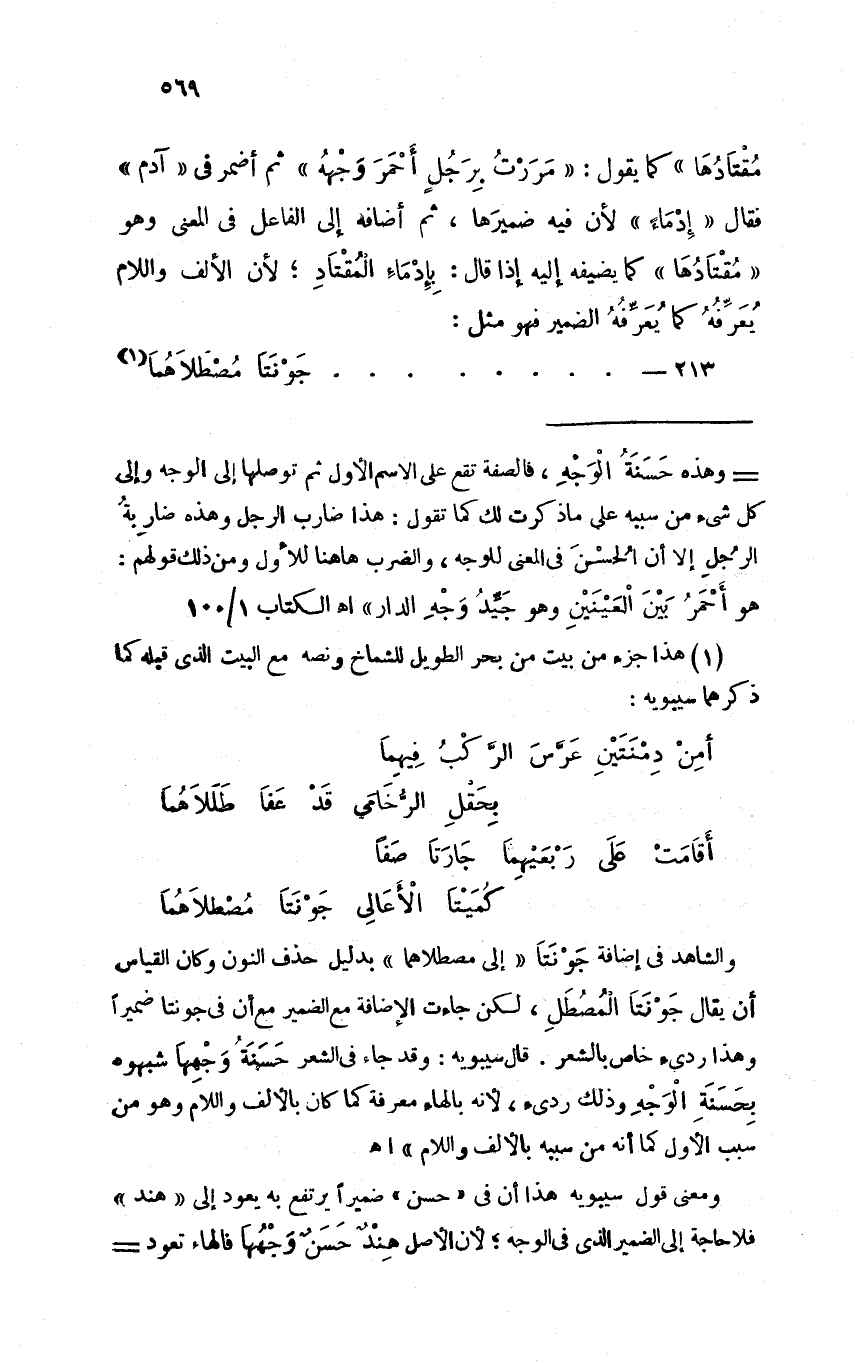 ٥٦٩
مُقْتَادُهَا » كما يقول : « مَرَرْتُ بِرَجُلٍ أَحْمَرَ وَجْهُهُ » ثم أضمر فى « آدم »
فقال « إِدْمَاءً » لأن فيه ضميرَها ، ثم أضافه إلى الفاعل فى المعنى وهو
« مُقْتَادُهَا » كما يضيفه إليه إذا قال : بِإِدْمَاءِ الْمُقْتَادِ ؛ لأن الألف واللام
يُعَرِّفُهُ كما يُعَرِّفُهُ الضمير فهو مثل :
٢١٣ — . . . . . . . . . جَوْنَتَا مُصْطَلاَهُمَا(١)
= وهذه حَسَنَةُ الْوَجْهِ ، فالصفة تقع على الاسم الأول ثم توصلها إلى الوجه وإلى
كل شىء من سببه على ماذكرت لك كما تقول : هذا ضارب الرجل وهذه ضاربةُ
الرجُلِ إلا أن الْحُسْنَ فى المعنى للوجه ، والضرب هاهنا للأول ومن ذلك قولهم :
هو أَحْمَرُ بَيْنَ الْعَيْنَيْنِ وهو جَيِّدُ وَجْهِ الدار » اه الكتاب ١٠٠/١
(١) هذا جزء من بيت من بحر الطويل للشماخ ونصه مع البيت الذى قبله كما
ذكرهما سيبويه :
أمِنْ دِمْنَتَيْنِ عَرَّسَ الرَّكْبُ فِيهِمَا
بِحَقْلِ الرُّخَامَي قَدْ عَفَا طَلَلاَهُمَا
أَقَامَتْ عَلَى رَبْعَيْهِمَا جَارَتَا صَفًا
كُمَيْتَا الْأَعَالِى جَوْنَتَا مُصْطلاَهُمَا
والشاهد فى إضافة جَوْنَتَا « إلى مصطلاهما » بدليل حذف النون وكان القياس
أن يقال جَوْنَتَا الْمُصْطَلِ ، لكن جاءت الإضافة مع الضمير مع أن فى جونتا ضميراً
وهذا ردىء خاص بالشعر . قال سيبويه : وقد جاء فى الشعر حَسَنَةُ وَجْهِهَا شبهوه
بِحَسَنَةِ الْوَجْهِ وذلك ردىء ، لأنه بالهاء معرفة كما كان بالألف واللام وهو من
سبب الأول كما أنه من سببه بالألف واللام » اه
ومعنى قول سيبويه هذا أن فى « حسن » ضميراً يرتفع به يعود إلى « هند »
فلا حاجة إلى الضمير الذى فى الوجه ؛ لأن الأصل هِنْدٌ حَسَنٌ وَجْهُهَا فالهاء تعود =